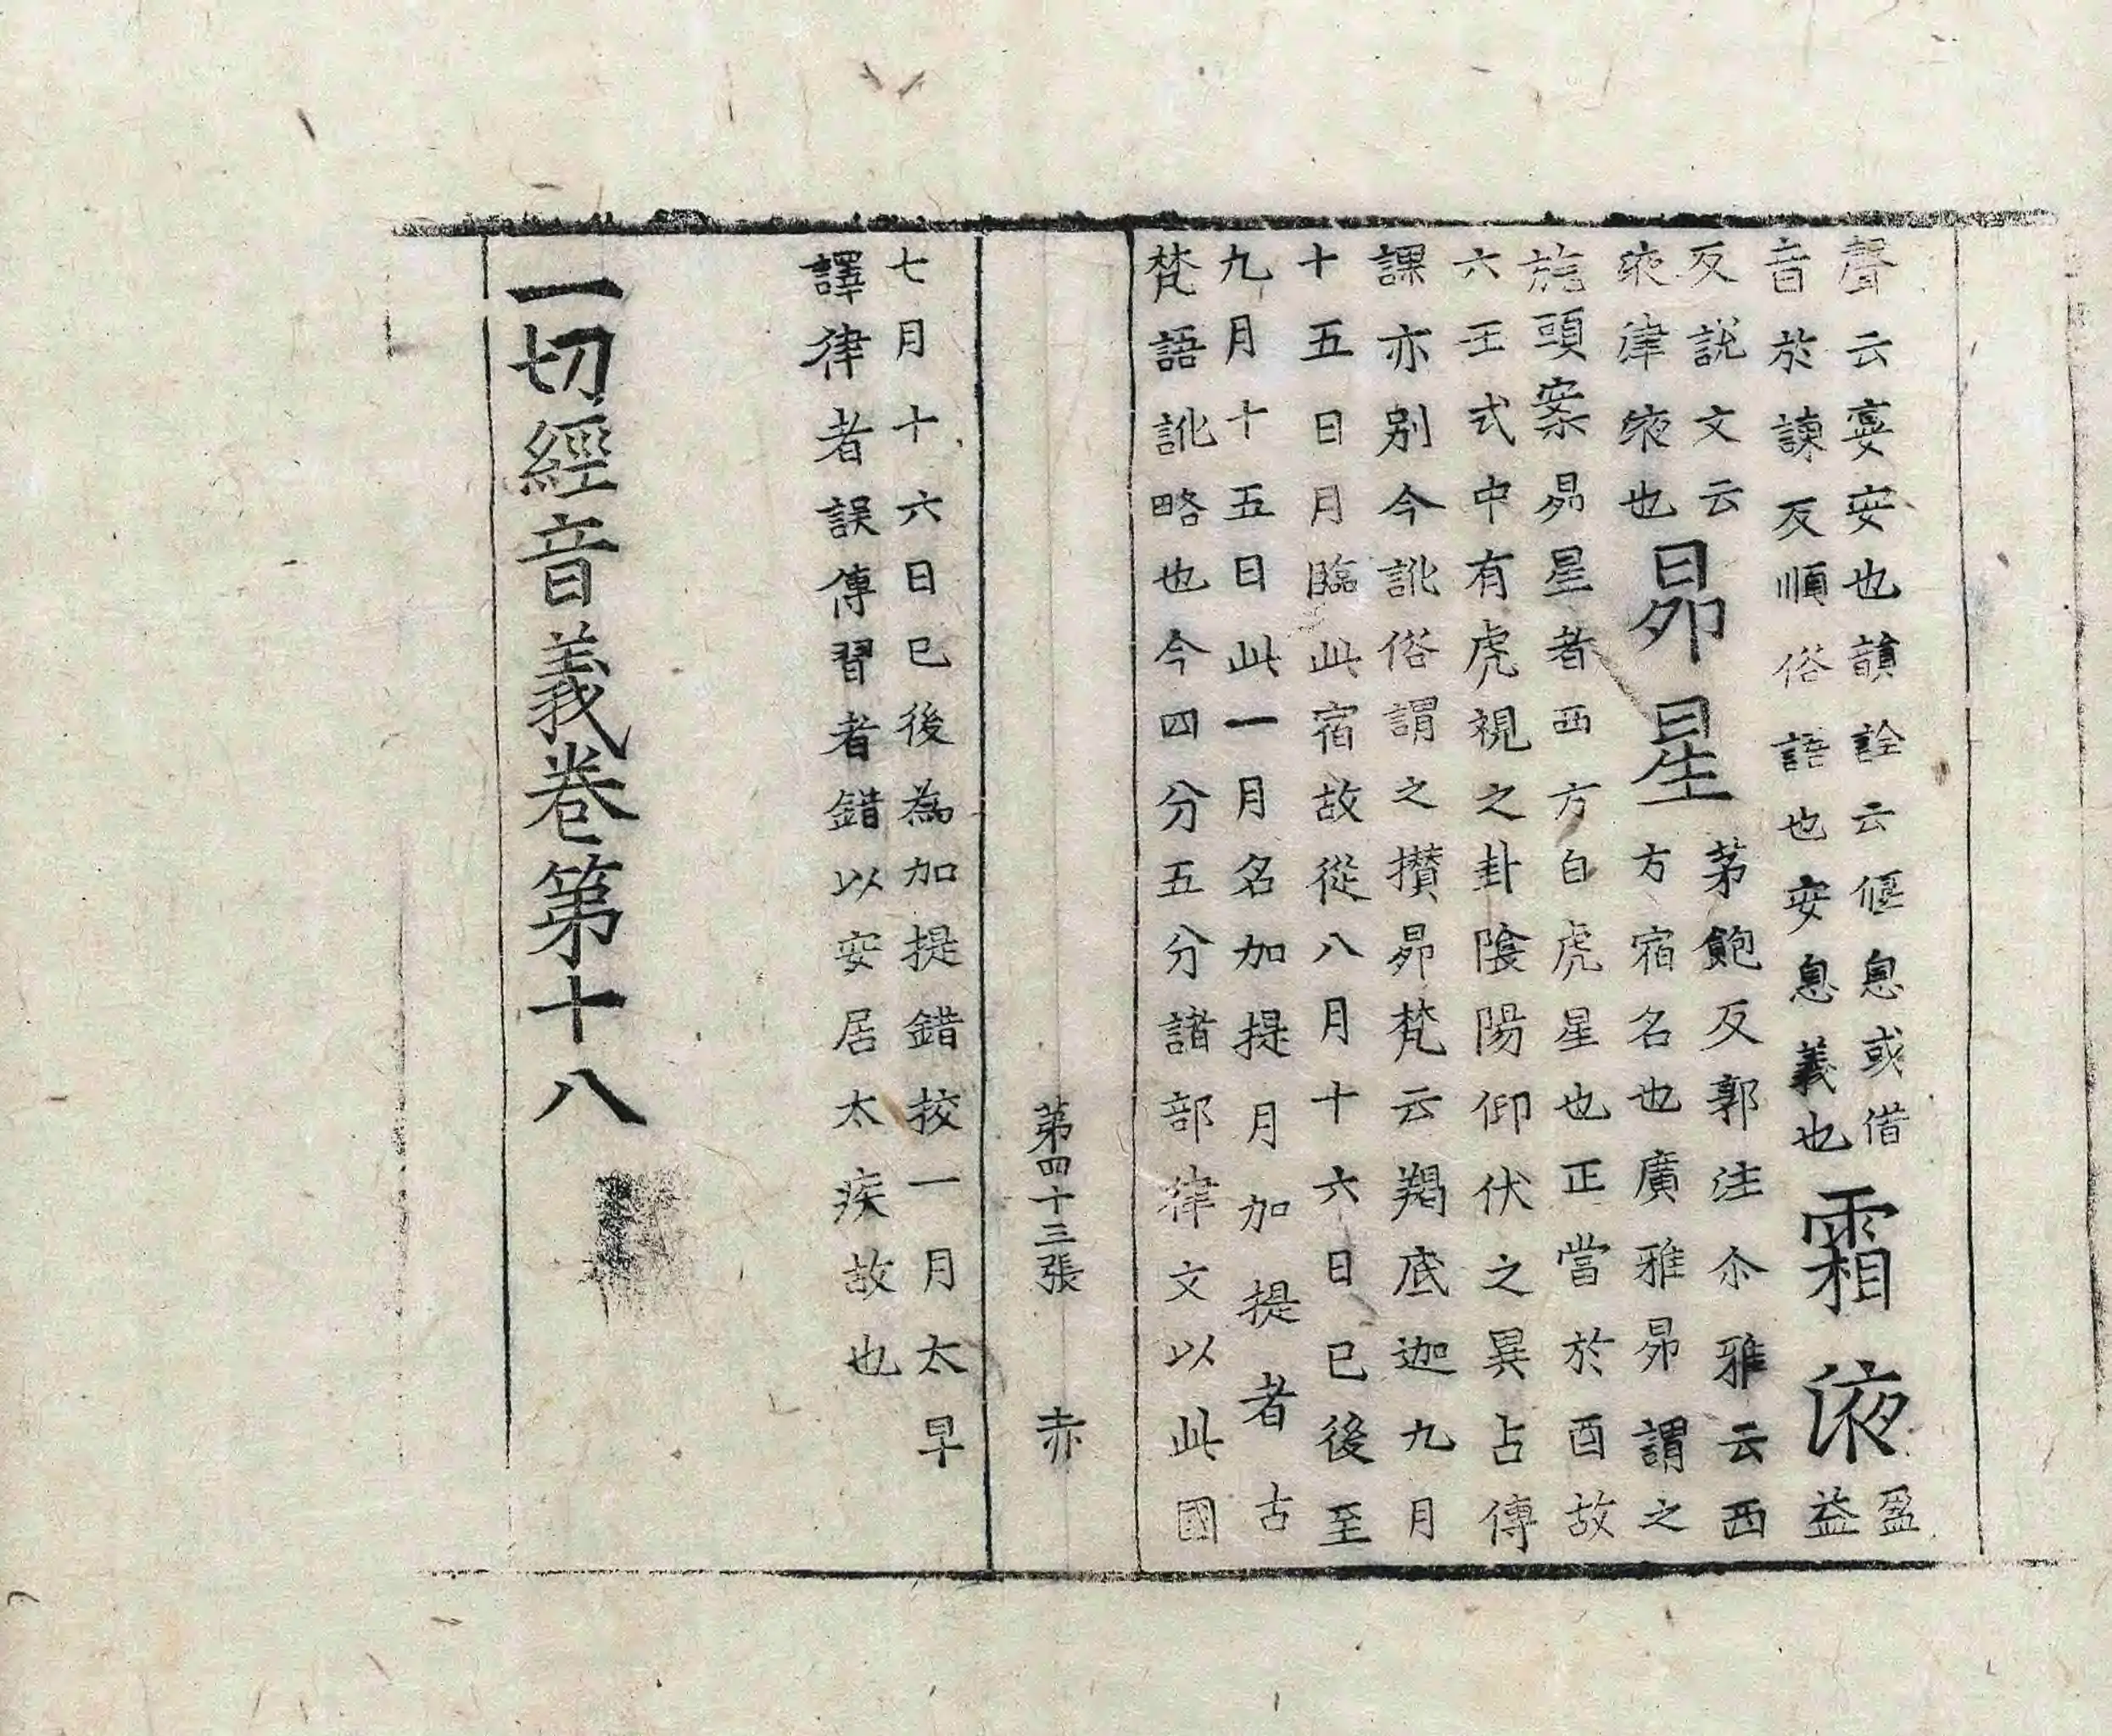 聲云宴安也韻詮云偃息或借
音於諫反順俗語也安息義也
霜液
盈
益
反說文云
液津液也
昴星
茅飽反郭注尒雅云西
方宿名也廣雅昴謂之
旄頭案昴星者西方白虎星也正當於酉故
六壬式中有虎視之卦陰陽仰伏之異占傳
課亦別今訛俗謂之攢昴梵云羯底迦九月
十五日月臨此宿故從八月十六日已後至
九月十五日此一月名加提月加提者古
梵語訛略也今四分五分諸部律文以此國
第四十三張 赤
七月十六日已後為加提錯挍一月太早
譯律者誤傳習者錯以安居太疾故也
一切經音義卷第十八